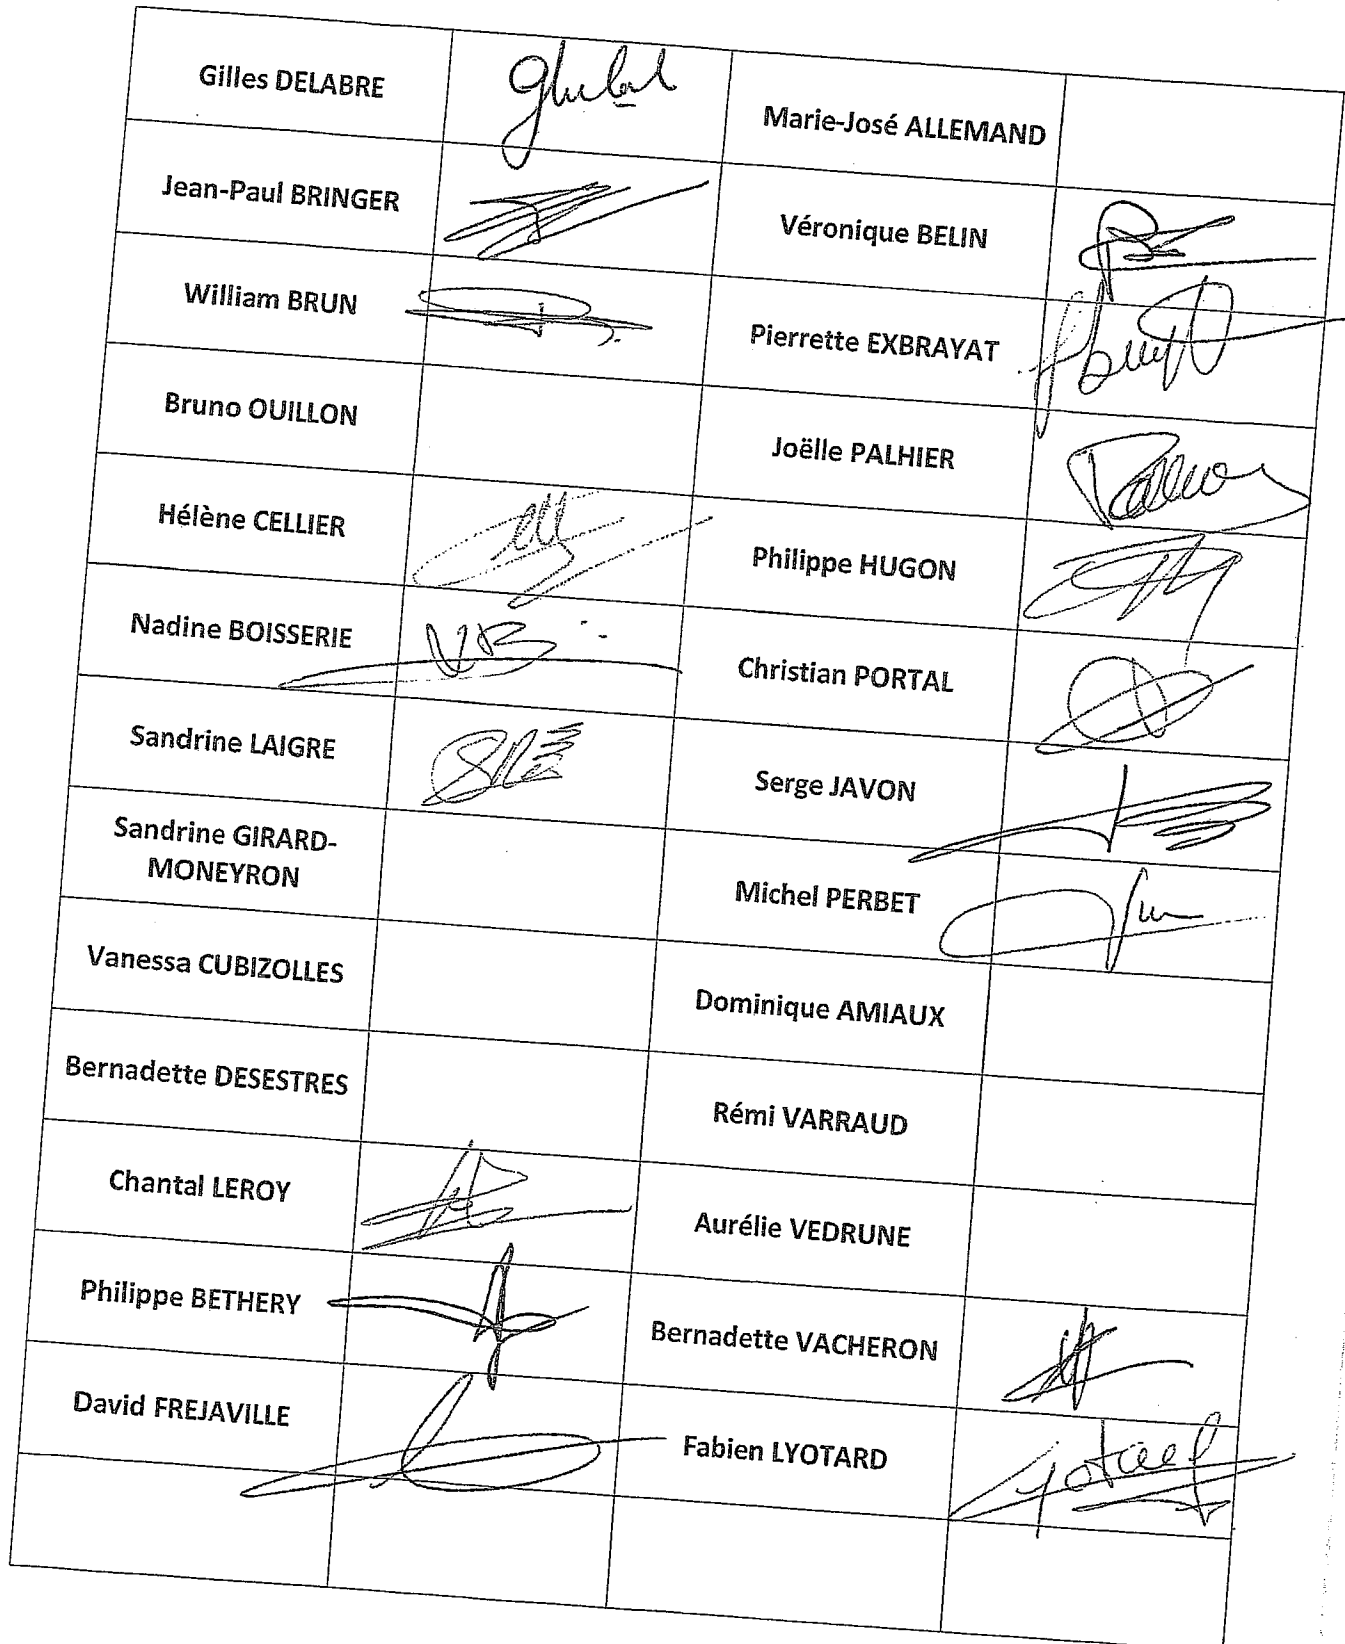 Gilles DELABRE
Marie-José ALLEMAND
Jean-Paul BRINGER
Véronique BELIN
William BRUN
Pierrette EXBRAYAT
Bruno OUILLON
Joëlle PALHIER
Hélène CELLIER
Philippe HUGON
Nadine BOISSERIE
Christian PORTAL
Sandrine LAIGRE
Serge JAVON
Sandrine GIRARD-
MONEYRON
Michel PERBET
Vanessa CUBIZOLLES
Dominique AMIAUX
Bernadette DESESTRES
Rémi VARRAUD
Chantal LEROY
Aurélie VEDRUNE
Philippe BETHERY
Bernadette VACHERON
David FREJAVILLE
Fabien LYOTARD